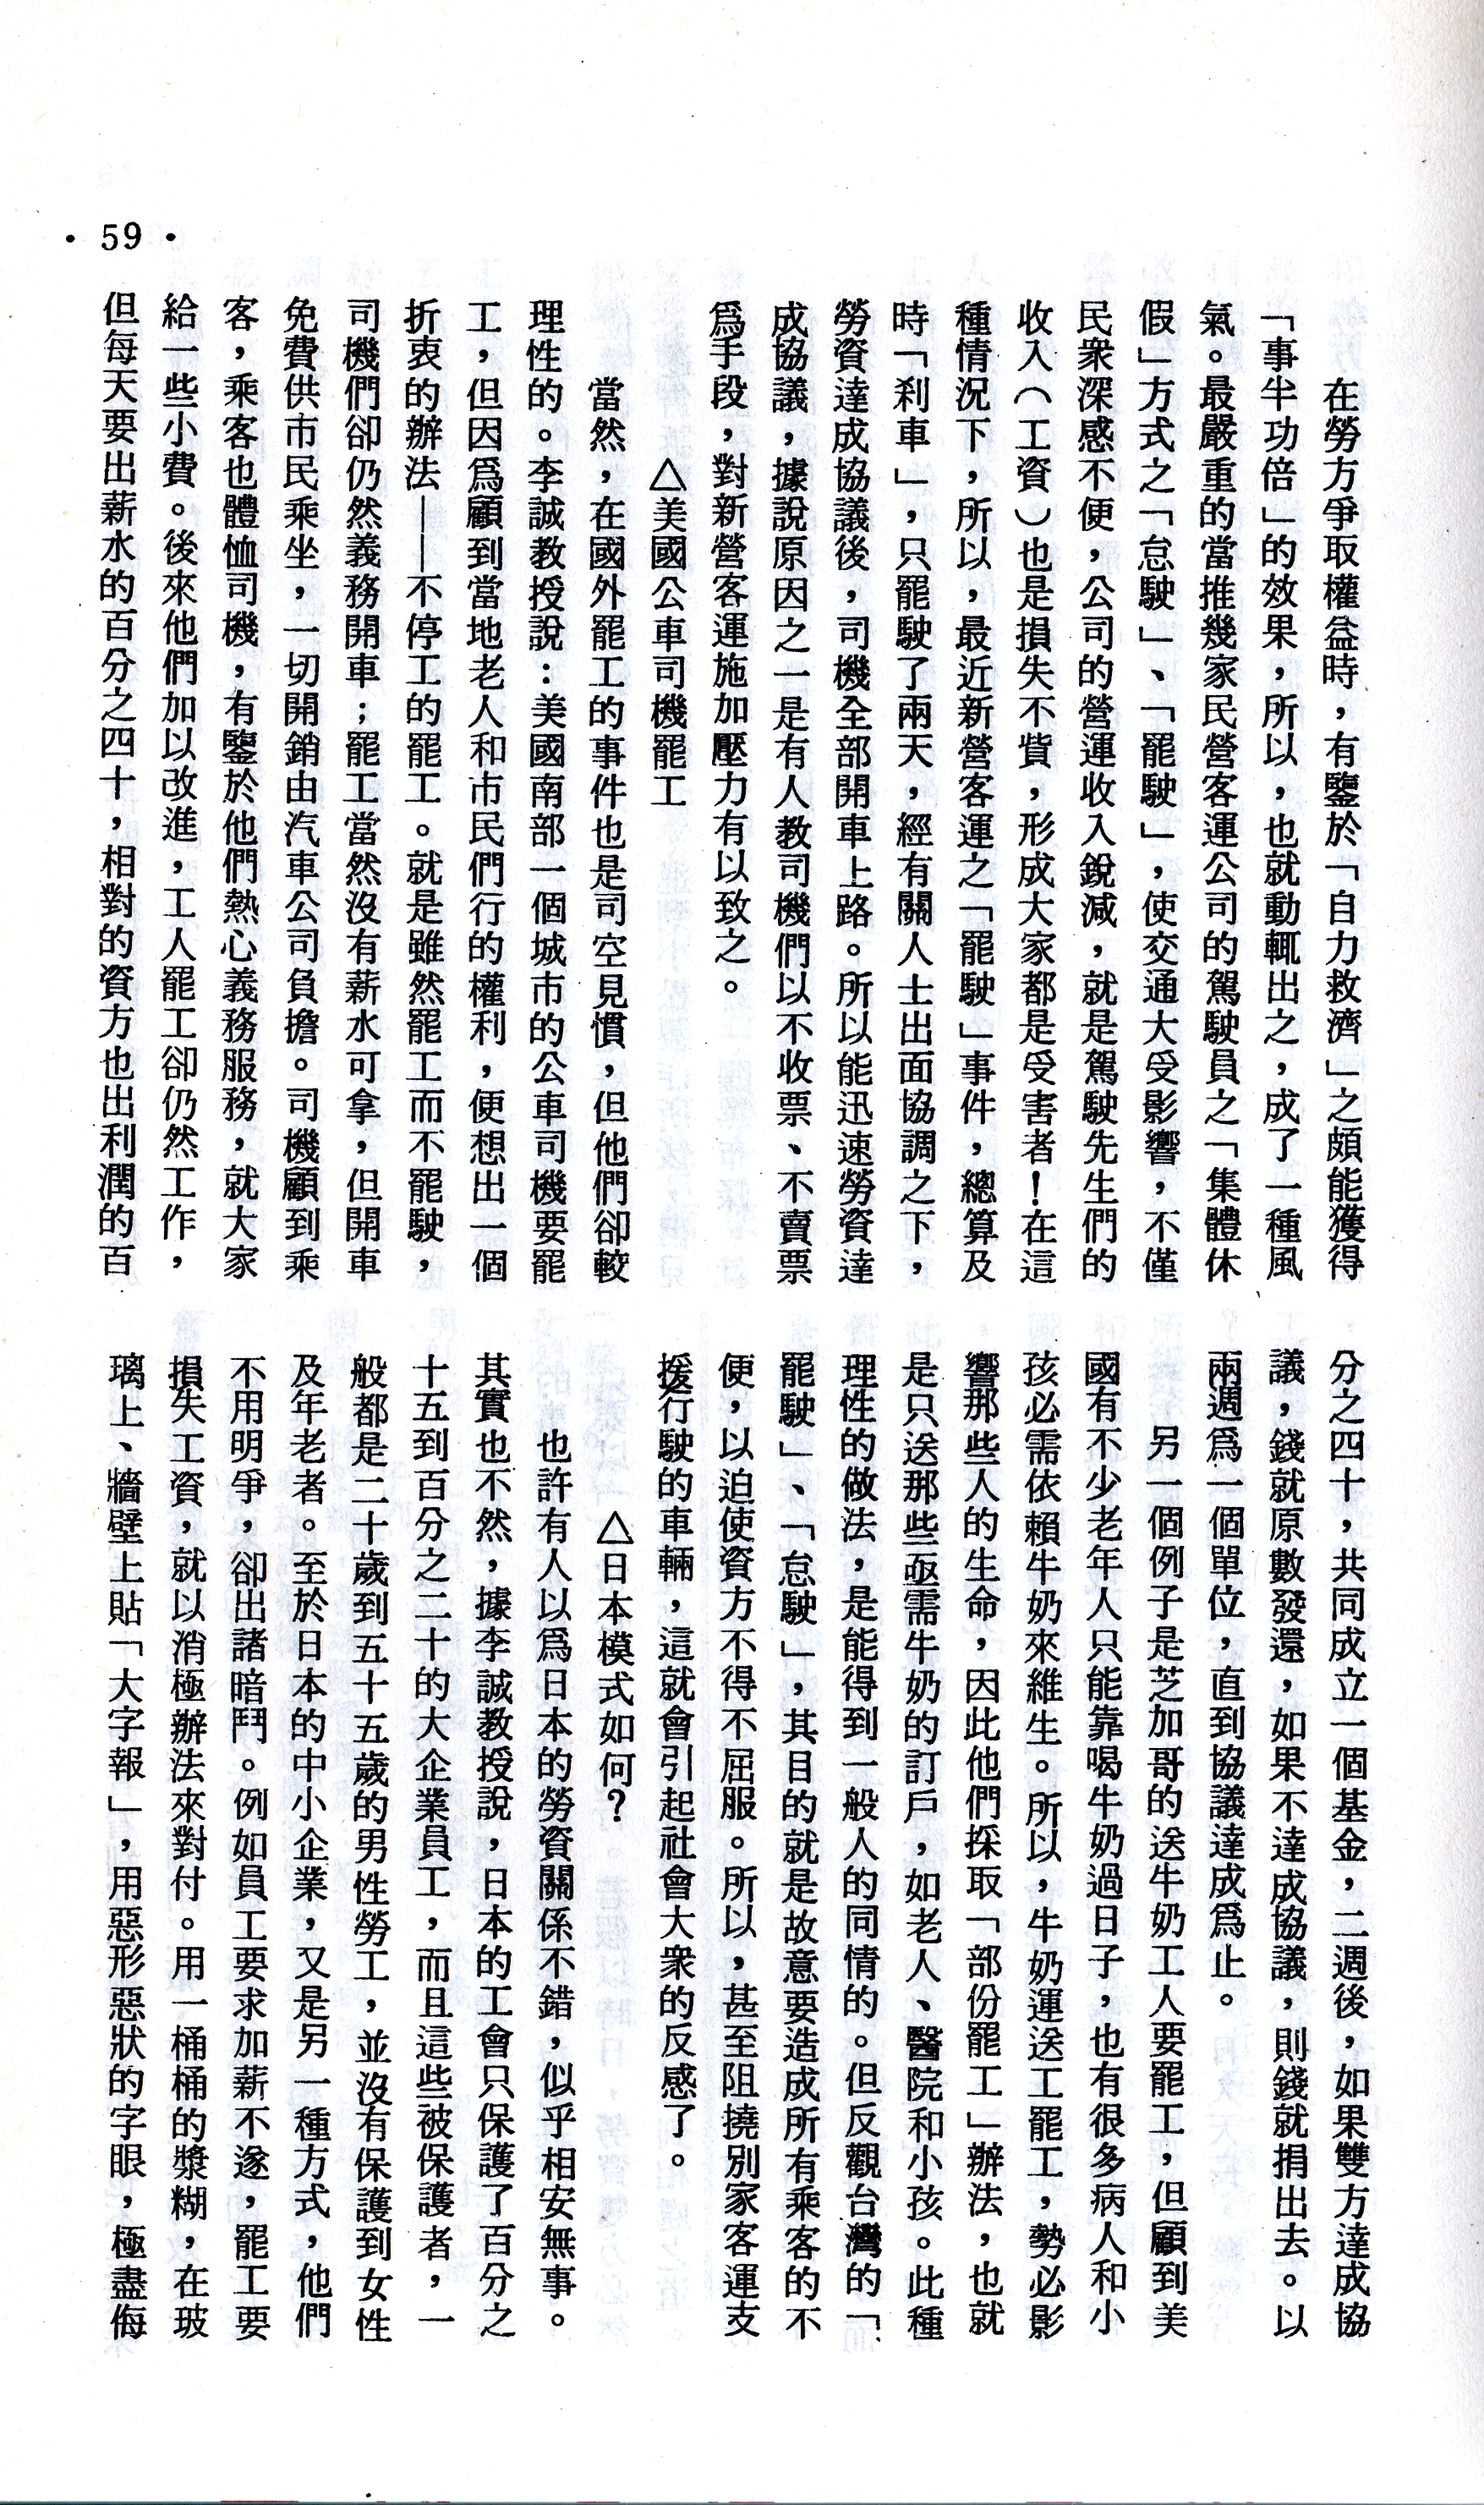 在勞方爭取權益時，有鑒於「自力救濟」之頗能獲得
「事半功倍」的效果，所以，也就動輒出之，成了一種風
氣。最嚴重的當推幾家民營客運公司的駕駛員之「集體休
假」方式之「怠駛」、「罷駛」，使交通大受影響，不僅
民衆深感不便，公司的營運收入銳減，就是駕駛先生們的
收入（工資）也是損失不貲，形成大家都是受害者！在這
種情況下，所以，最近新營客運之「罷駛」事件，總算及
時「刹車」，只罷駛了兩天，經有關人士出面協調之下，
勞資達成協議後，司機全部開車上路。所以能迅速勞資達
成協議，據說原因之一是有人教司機們以不收票、不賣票
爲手段，對新營客運施加壓力有以致之。
△美國公車司機罷工
當然，在國外罷工的事件也是司空見慣，但他們卻較
理性的。李誠教授說：美國南部一個城市的公車司機要罷
工，但因爲顧到當地老人和市民們行的權利，便想出一個
折衷的辦法——不停工的罷工。就是雖然罷工而不罷駛，
司機們卻仍然義務開車；罷工當然沒有薪水可拿，但開車
免費供市民乘坐，一切開銷由汽車公司負擔。司機顧到乘
客，乘客也體恤司機，有鑒於他們熱心義務服務，就大家
給一些小費。後來他們加以改進，工人罷工卻仍然工作，
但每天要出薪水的百分之四十，相對的資方也出利潤的百
分之四十，共同成立一個基金，二週後，如果雙方達成協
議，錢就原數發還，如果不達成協議，則錢就捐出去。以
兩週爲一個單位，直到協議達成爲止。
另一個例子是芝加哥的送牛奶工人要罷工，但顧到美
國有不少老年人只能靠喝牛奶過日子，也有很多病人和小
孩必需依賴牛奶來維生。所以，牛奶運送工罷工，勢必影
響那些人的生命，因此他們採取「部份罷工」辦法，也就
是只送那些亟需牛奶的訂戶，如老人、醫院和小孩。此種
理性的做法，是能得到一般人的同情的。但反觀台灣的「
罷駛」、「怠駛」，其目的就是故意要造成所有乘客的不
便，以迫使資方不得不屈服。所以，甚至阻撓別家客運支
援行駛的車輛，這就會引起社會大衆的反感了。
△日本模式如何？
也許有人以爲日本的勞資關係不錯，似乎相安無事。
其實也不然，據李誠教授說，日本的工會只保護了百分之
十五到百分之二十的大企業員工，而且這些被保護者，一
般都是二十歲到五十五歲的男性勞工，並沒有保護到女性
及年老者。至於日本的中小企業，又是另一種方式，他們
不用明爭，卻出諸暗鬥。例如員工要求加薪不遂，罷工要
損失工資，就以消極辦法來對付。用一桶桶的漿糊，在玻
璃上、牆壁上貼「大字報」，用惡形惡狀的字眼，極盡侮
·59·